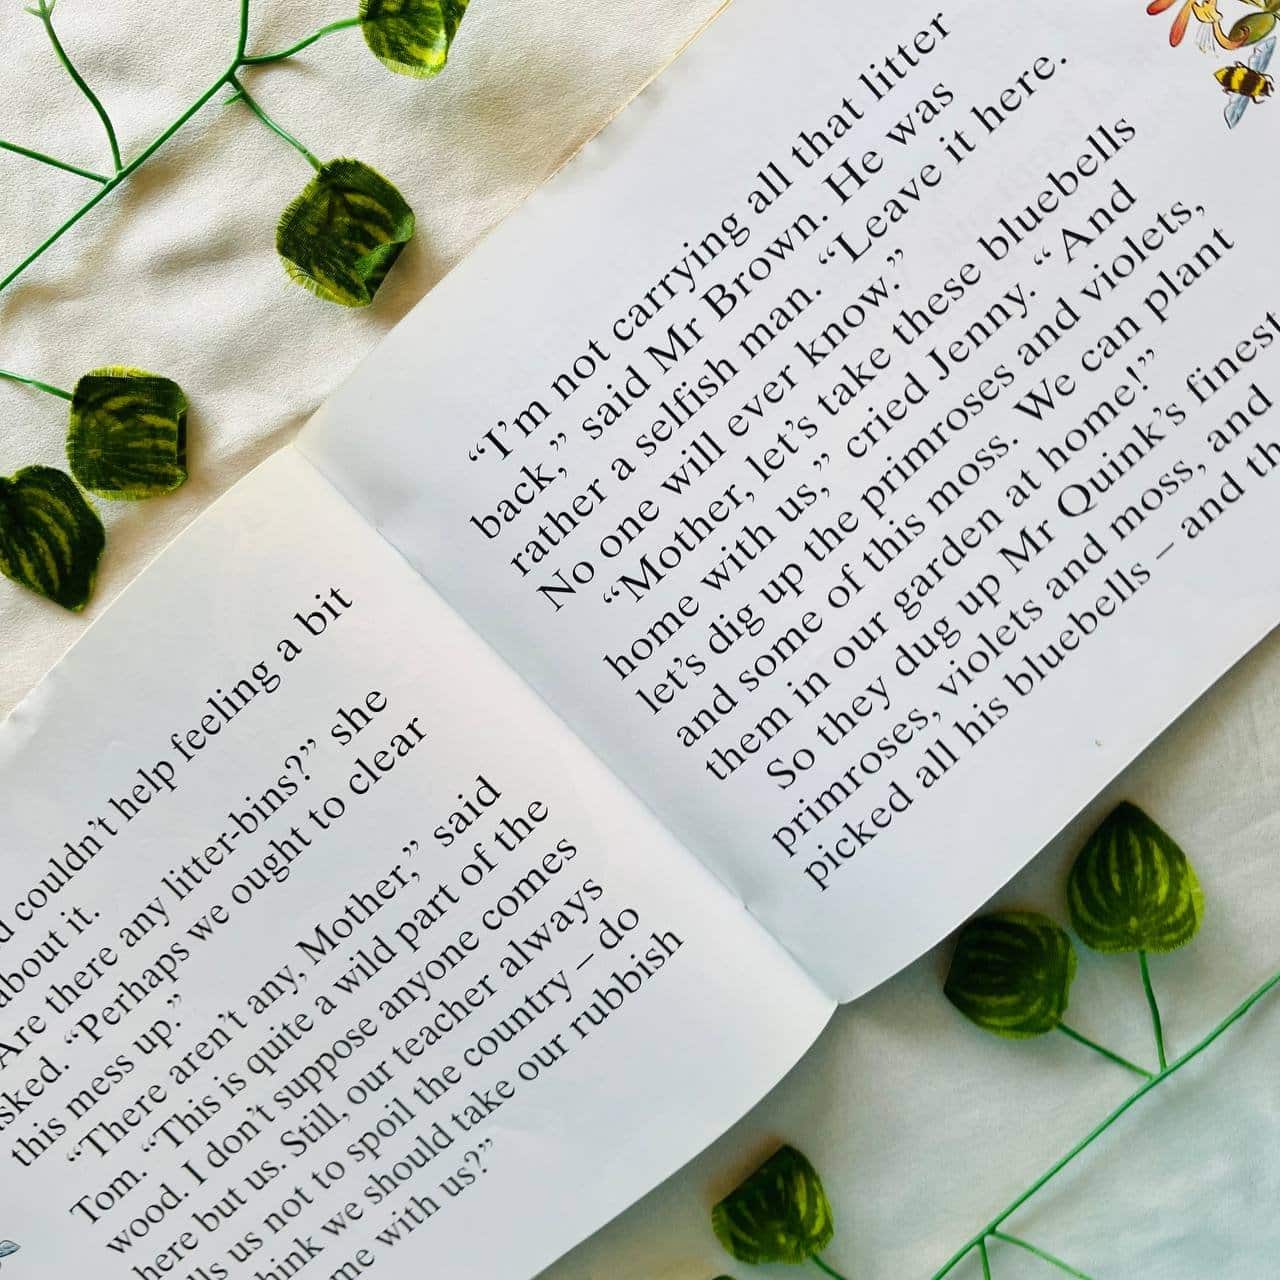 couldn't help feeling a bit
about it.
Are there any litter-bins?" she
asked. "Perhaps we ought to clear
this mess up."
"There aren't any, Mother," said
Tom. "This is quite a wild part of the
wood. I don't suppose anyone comes
here but us. Still, our teacher always
us not to spoil the country – do
think we should take our rubbish
me with us?"
"I'm not carrying all that litter
back," said Mr Brown. He was
rather a selfish man. "Leave it here.
No one will ever know."
"Mother, let's take these bluebells
home with us," cried Jenny. "And
let's dig up the primroses and violets,
and some of this moss. We can plant
them in our garden at home!"
So they dug up Mr Quink's finest
primroses, violets and moss, and
picked all his bluebells – and th